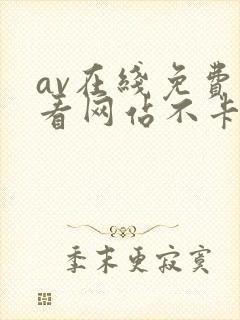 av在线免费
看网站不卡
季末更寂寞